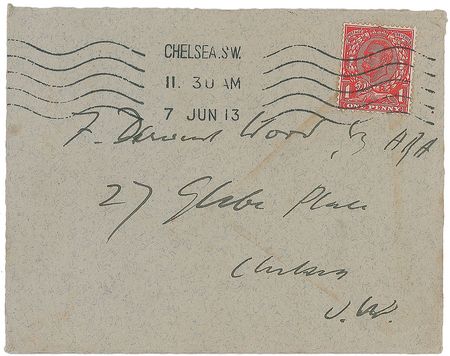 CHELSEA. S.W.
11. 30 AM
7 JUN 13
ONE PENNY
F. Derwent Wood, Esq ARA
27 Glebe Place
Chelsea
S.W.